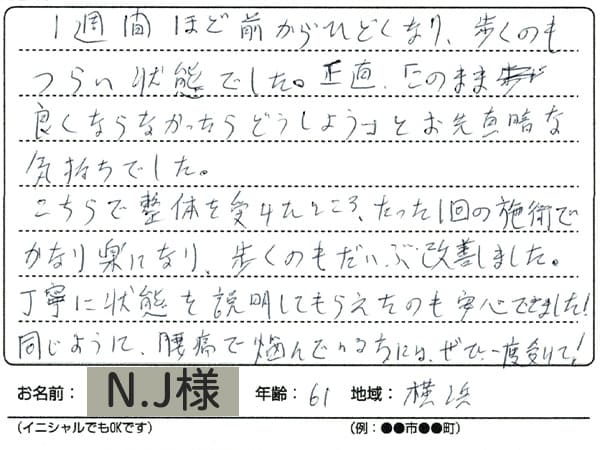 1週間ほど前からひどくなり、歩くのも
つらい状態でした。正直、「このまま
良くならなかったらどうしよう」とお先真暗な
気持ちでした。
こちらで整体を受けたところ、たった1回の施術で
かなり楽になり、歩くのもだいぶ改善しました。
丁寧に状態を説明してもらえたのも安心できました!
同じように、腰痛で悩んでいる方には、ぜひ一度受けて!
お名前： N.J様 年齢：61 地域：横浜
(イニシャルでもOKです) (例：●●市●●町)